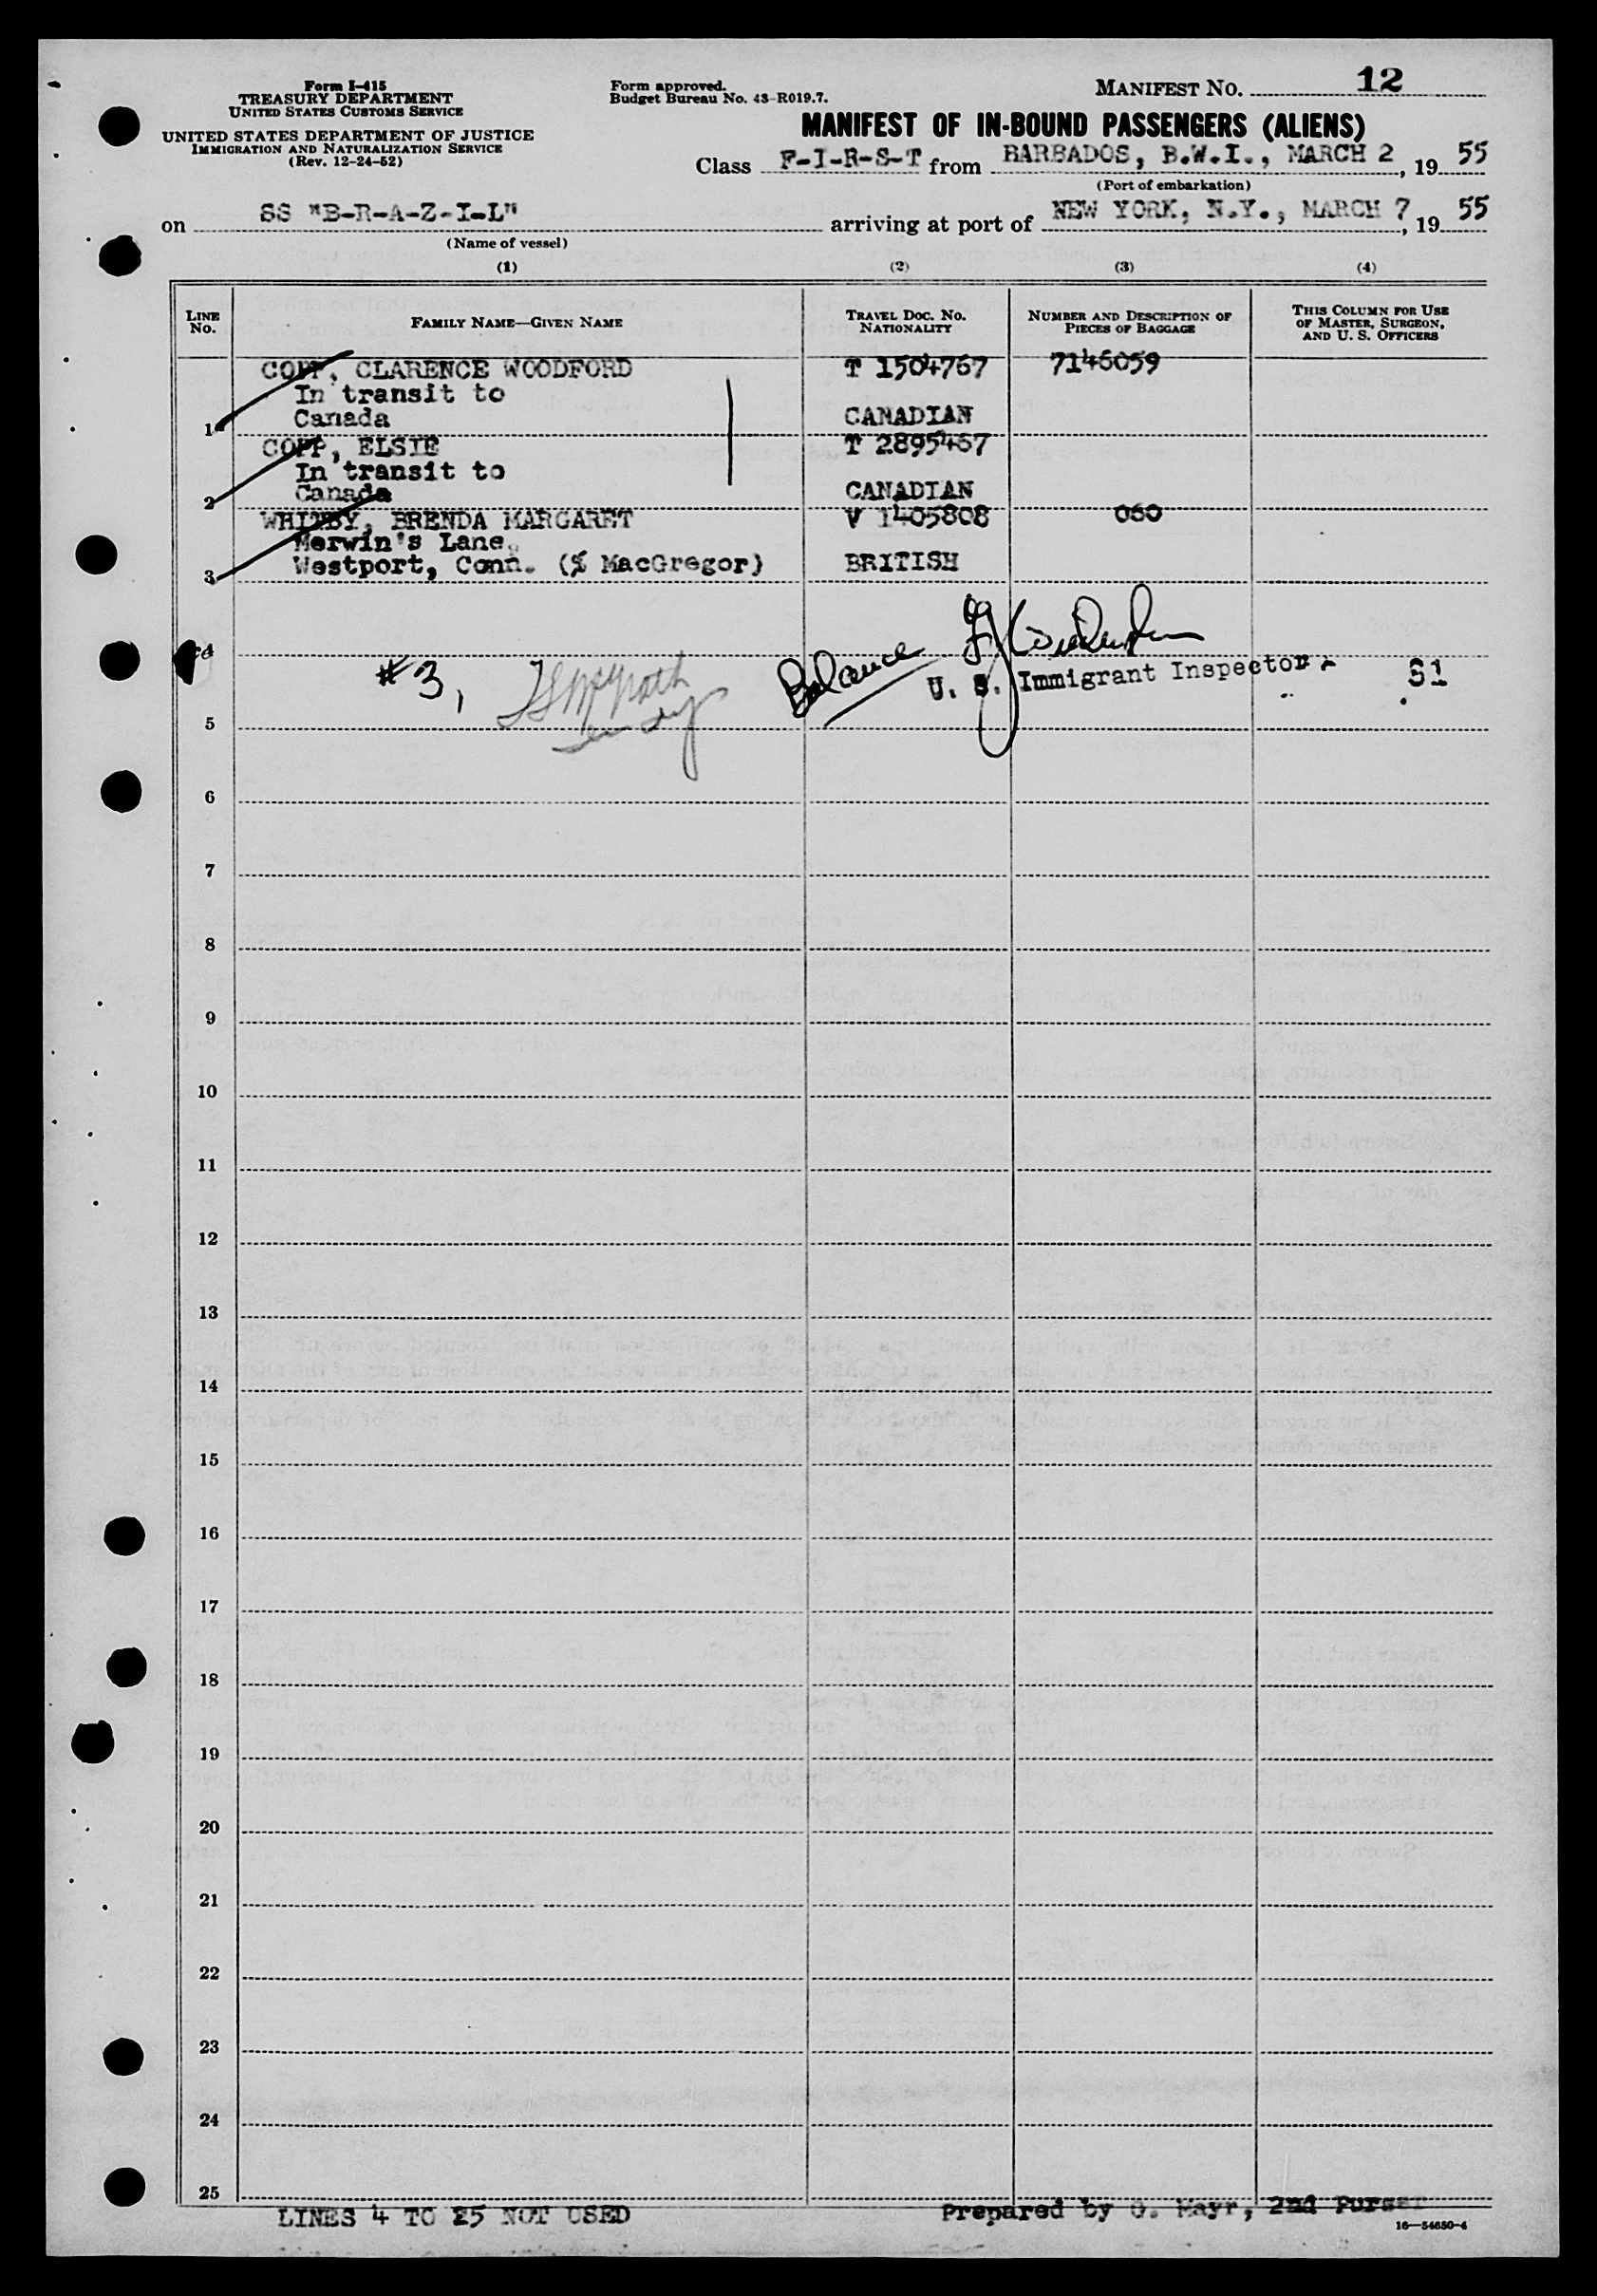 Form I-415
TREASURY DEPARTMENT
UNITED STATES CUSTOMS SERVICE
UNITED STATES DEPARTMENT OF JUSTICE
IMMIGRATION AND NATURALIZATION SERVICE
(Rev. 12-24-52)
Form approved.
Budget Bureau No. 43-R019.7.
MANIFEST NO. 12
MANIFEST OF IN-BOUND PASSENGERS (ALIENS)
Class F-I-R-S-T from BARBADOS, B.W.I., MARCH 2, 19 55
(Port of embarkation)
on SS "B-R-A-Z-I-L" arriving at port of NEW YORK, N.Y., MARCH 7, 19 55
(Name of vessel)
(1) (2) (3) (4)
LINE NO. FAMILY NAME—GIVEN NAME TRAVEL DOC. NO. NATIONALITY NUMBER AND DESCRIPTION OF PIECES OF BAGGAGE THIS COLUMN FOR USE OF MASTER, SURGEON, AND U. S. OFFICERS
COPP, CLARENCE WOODFORD T 1504767 7146059
In transit to
1 Canada CANADIAN
COPP, ELSIE T 2895467
In transit to
2 Canada CANADIAN
WHITBY, BRENDA MARGARET V 1405808 060
Merwin's Lane,
3 Westport, Conn. (% MacGregor) BRITISH
4
#3, Balance
U. S. Immigrant Inspector 51
5
6
7
8
9
10
11
12
13
14
15
16
17
18
19
20
21
22
23
24
25
LINES 4 TO 25 NOT USED Prepared by G. Mayr, 2nd Purser
16—54650-4